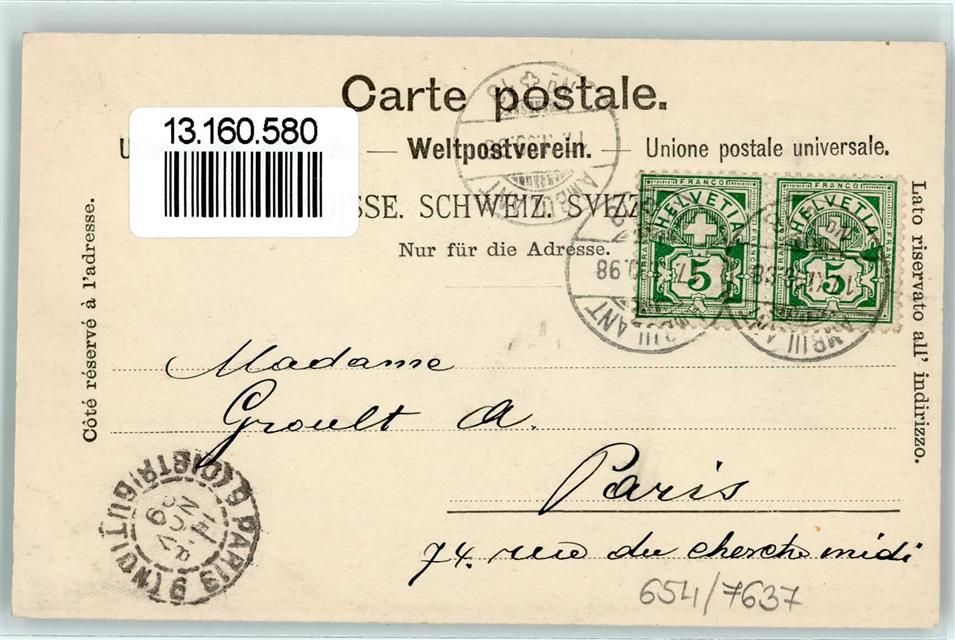 Carte postale.
13.160.580
Weltpostverein. — Unione postale universale.
SCHWEIZ.
Nur für die Adresse.
Côté réservé à l'adresse.
Lato riservato all' indirizzo.
FRANCO FRANCO
HELVETIA HELVETIA
5 5
Madame
Groult A.
Paris
74. rue du cherche midi
PARIS
(DISTRIBUTION)
654/7637